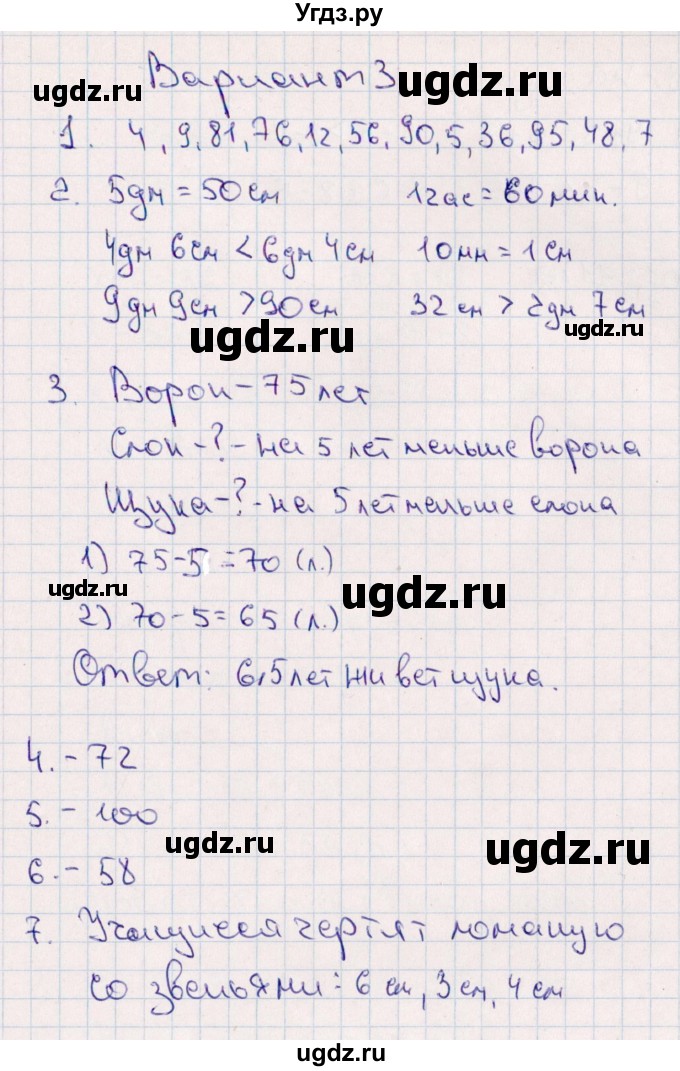 Угдз.ру
Вариант 3
ugdz.ru
ugdz.ru
1. 4, 9, 81, 76, 12, 56, 90, 5, 36, 95, 48, 7
2. 5дм = 50см 1час = 60мин.
4дм 6см < 6дм 4см 10мм = 1см
9дм 9см > 90см 32см > 2дм 7см
ugdz.ru
ugdz.ru
3. Ворон - 75 лет
Слон - ? - на 5 лет меньше ворона
Щука - ? - на 5 лет меньше слона
1) 75 - 5 = 70 (л.)
ugdz.ru
ugdz.ru
2) 70 - 5 = 65 (л.)
Ответ: 65 лет живет щука.
4. - 72
5. - 100
ugdz.ru
ugdz.ru
6. - 58
7. Учащиеся чертят ломаную
со звеньями: 6 см, 3 см, 4 см
ugdz.ru